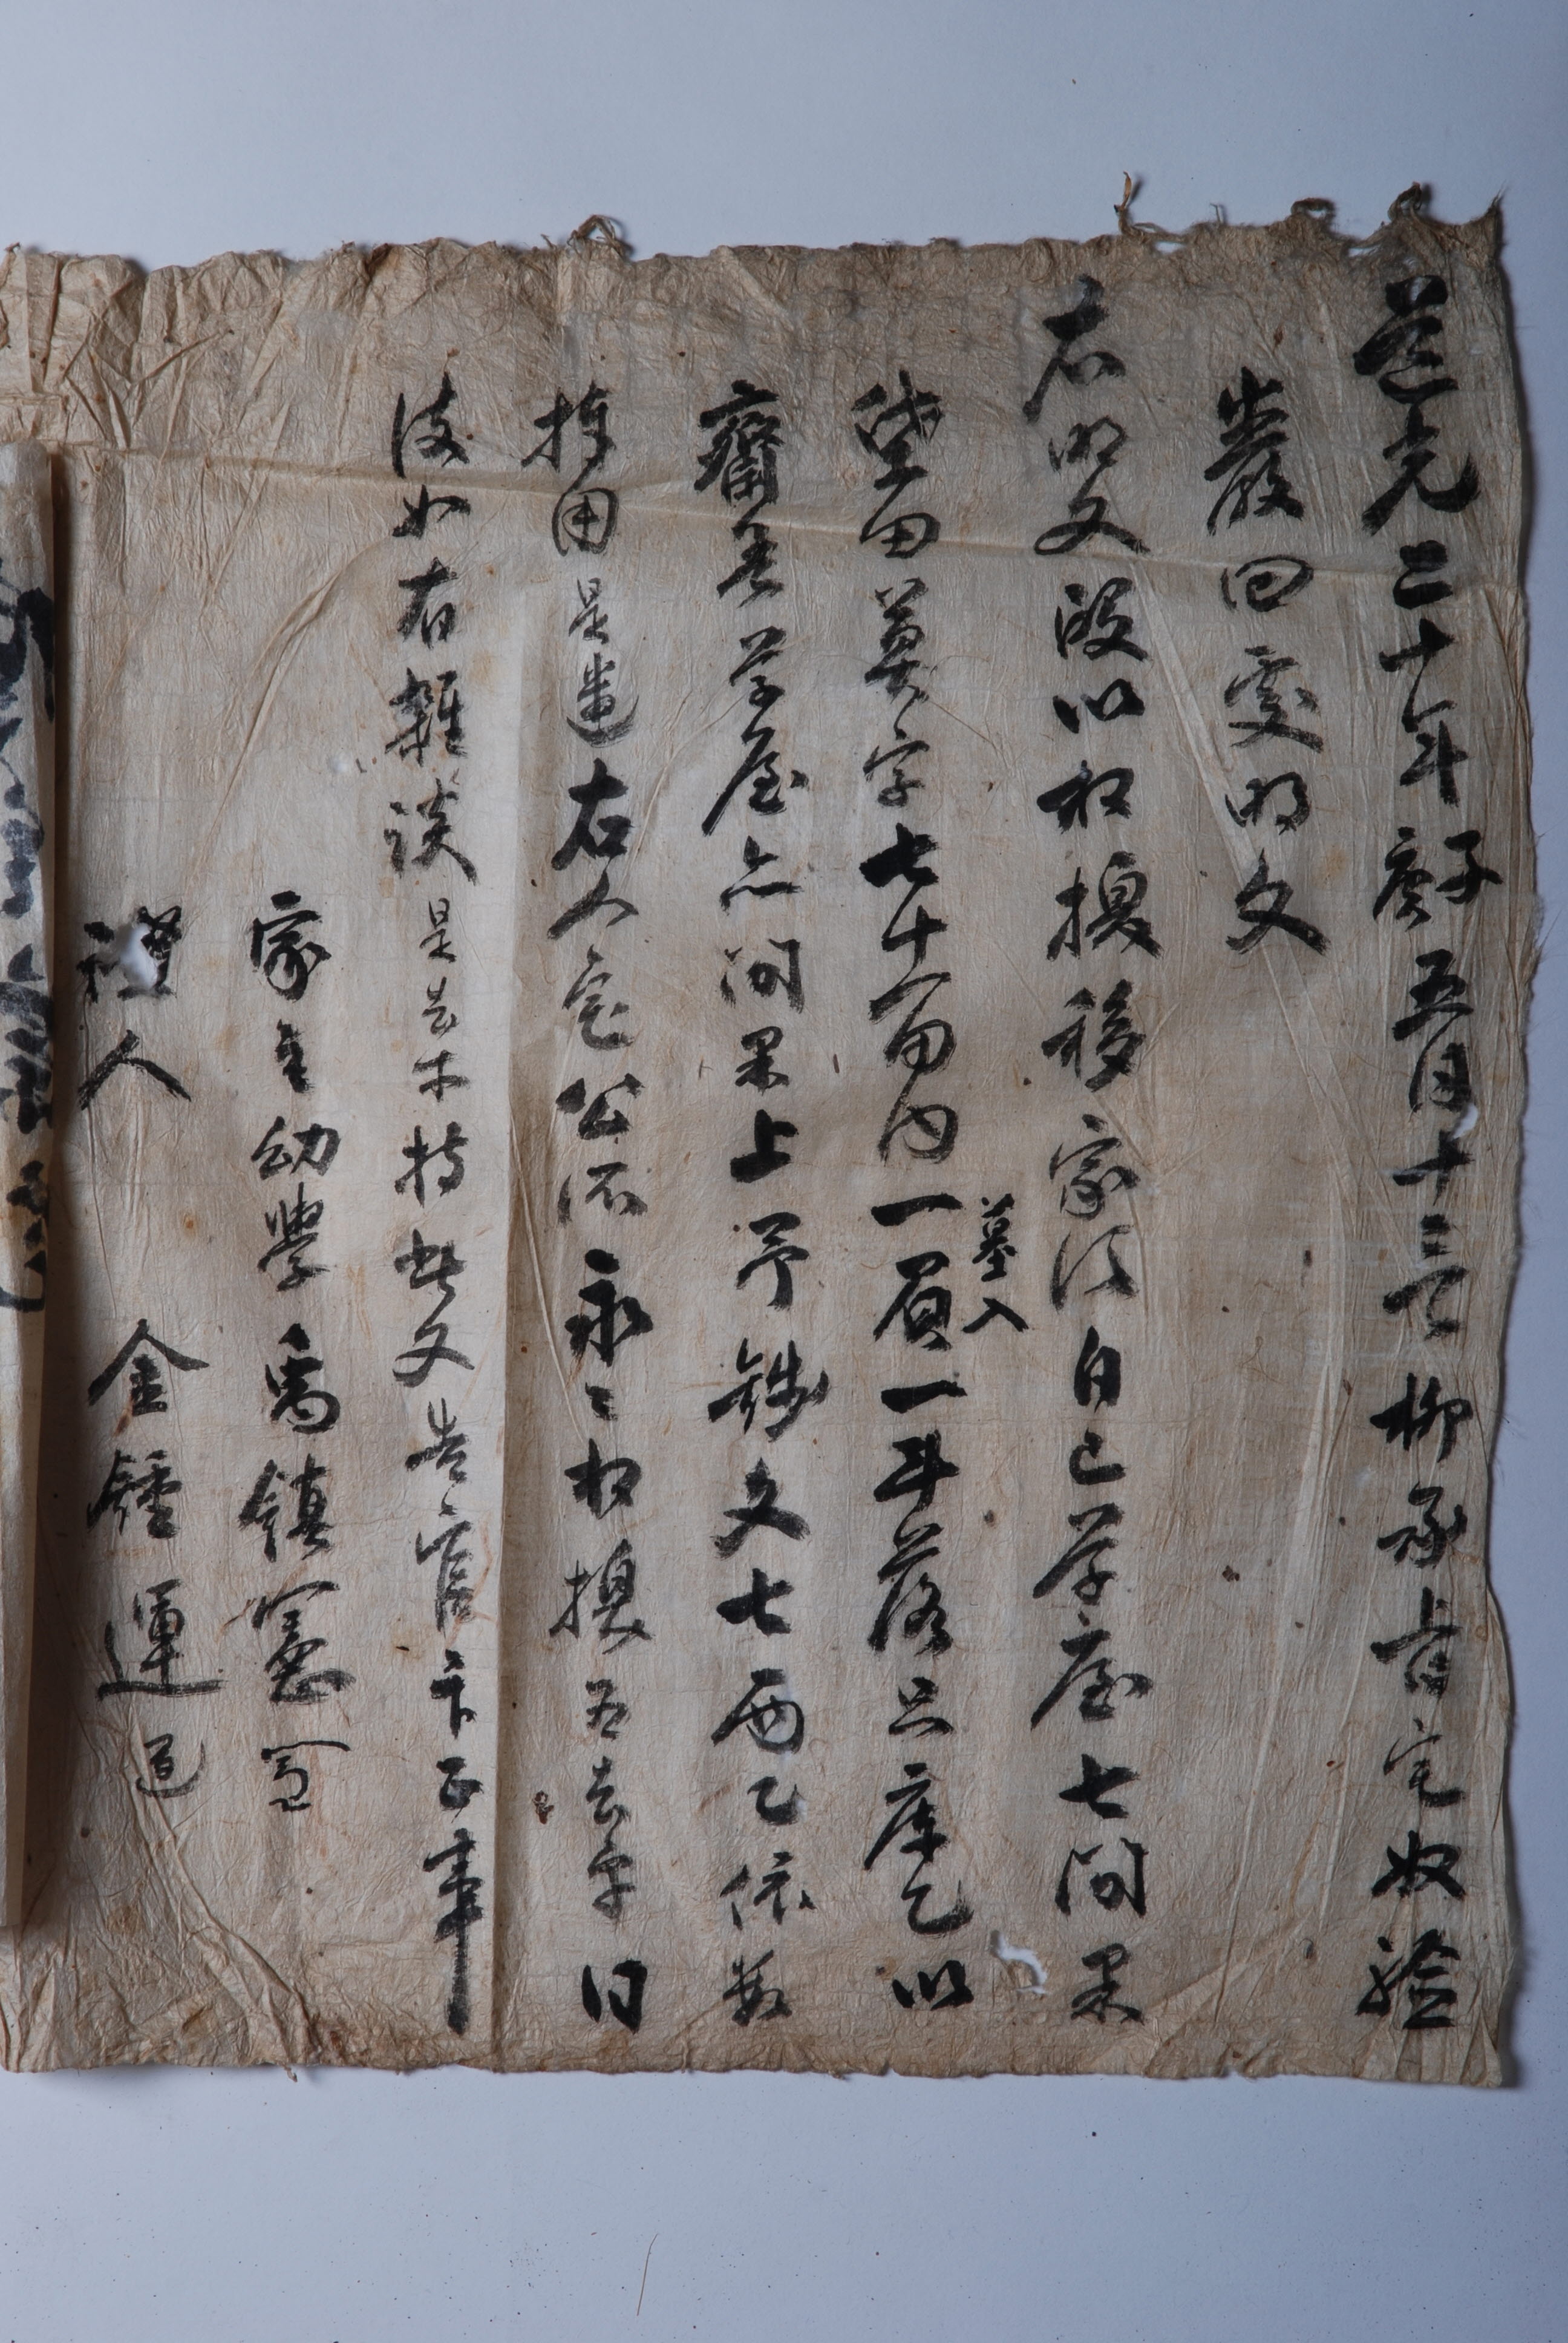 道光二十年庚子五月十三日 柳承旨宅奴驗
嚴回處明文
右明文段以相換移家次自己草屋七間果
垈田莫字七十面內一員一斗落只庫乙以
墓入
齋基草屋六間果上予錢文七兩乙依數
捧用是遣右人宅公況永永相換爲去乎日
後如有雜談是去等持此文告官卞正事
家主幼學禹鎭憲
證人 金鍾運